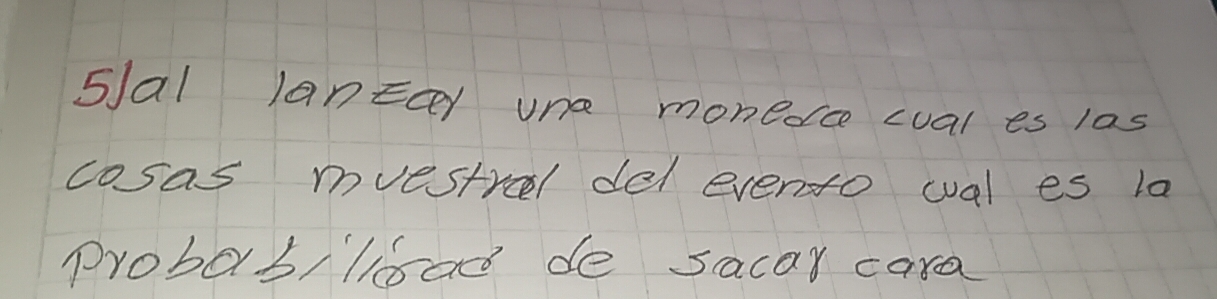 5) al lanzar una moneda cual es las
cosas muestral del evento cual es la
probabilidad de sacar cara